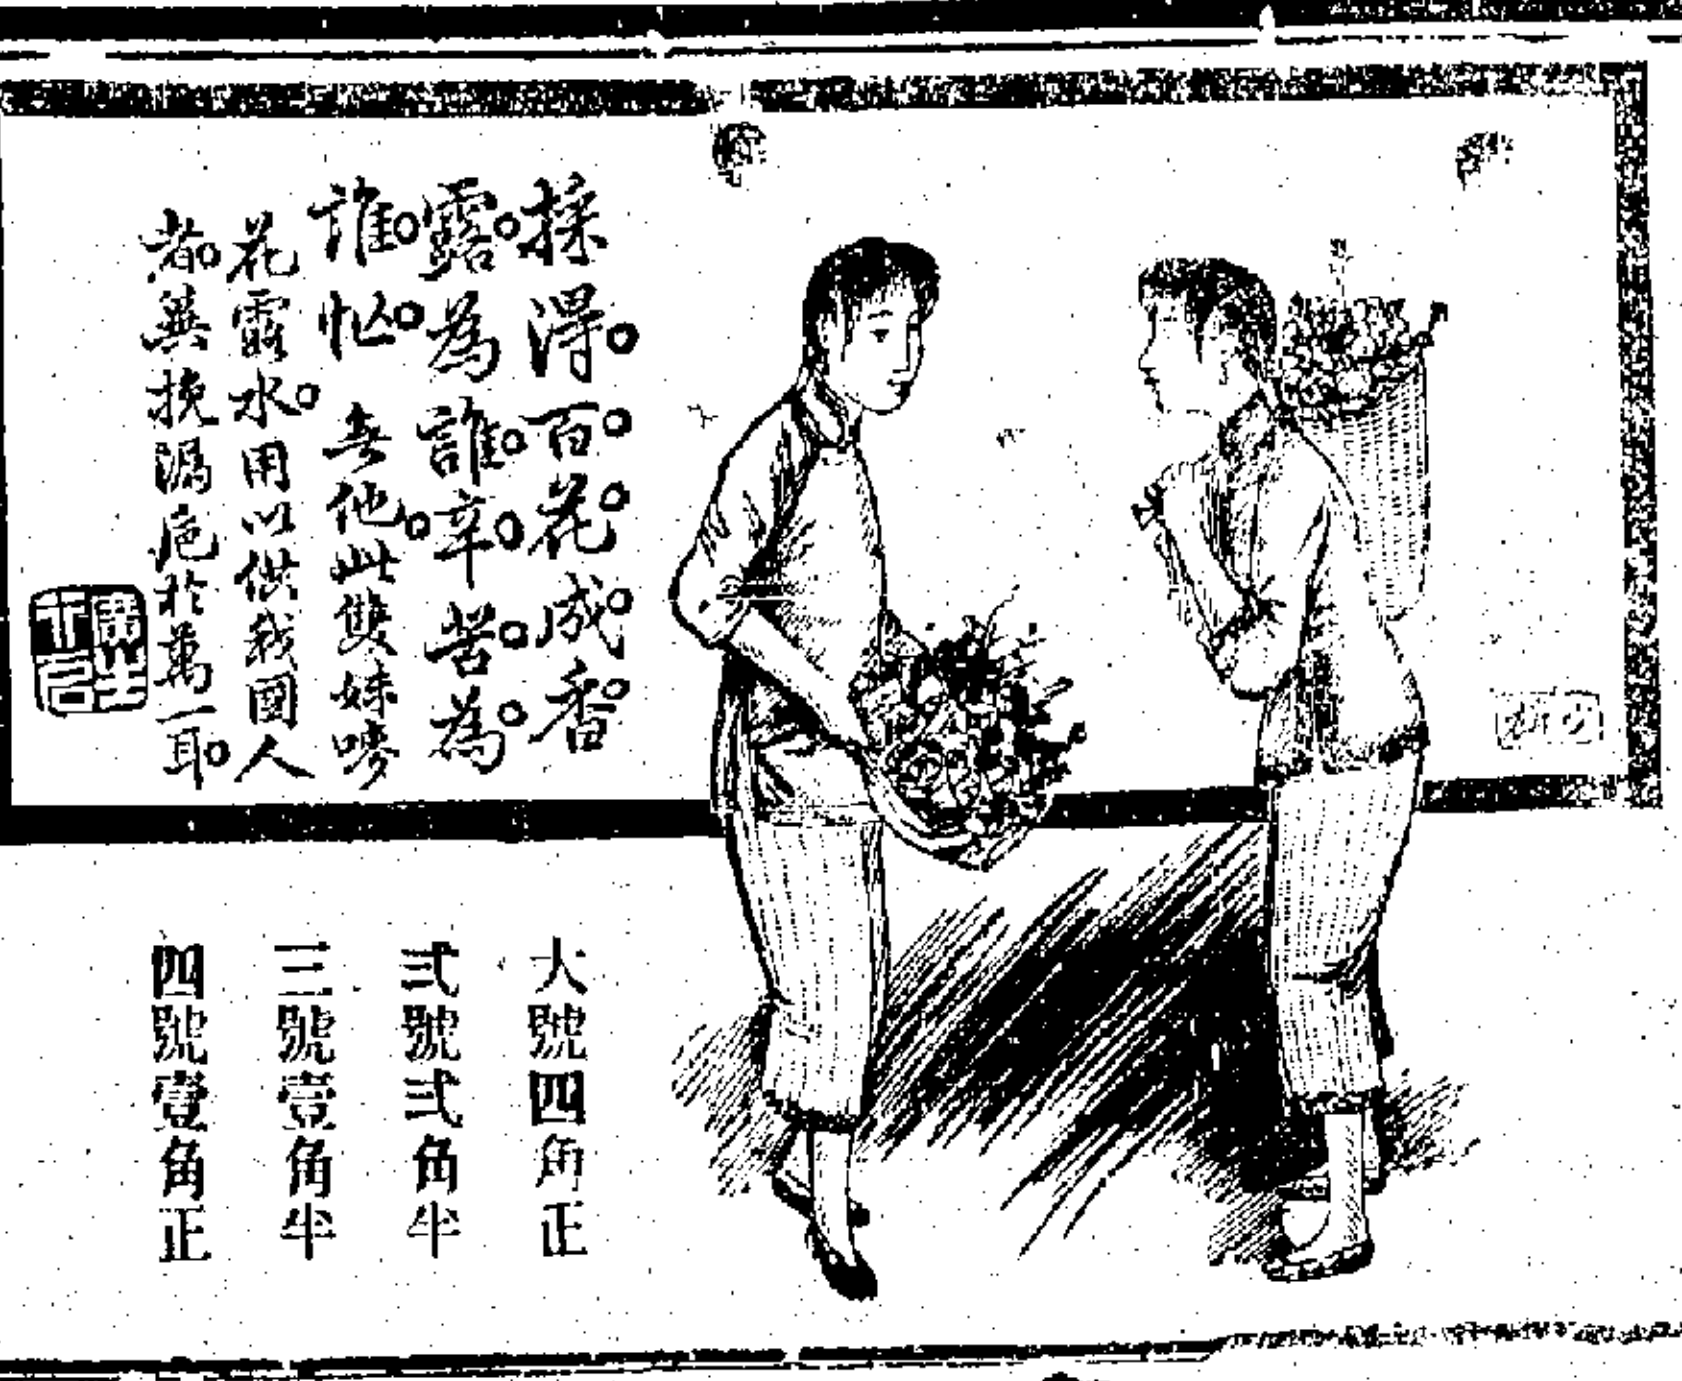 採得百花成香
露為誰辛苦為
誰忙 無他此雙妹嘜
花露水用以供我國人
者冀挽漏巵於萬一耳
大號四角正
弍號弍角半
三號壹角半
四號壹角正